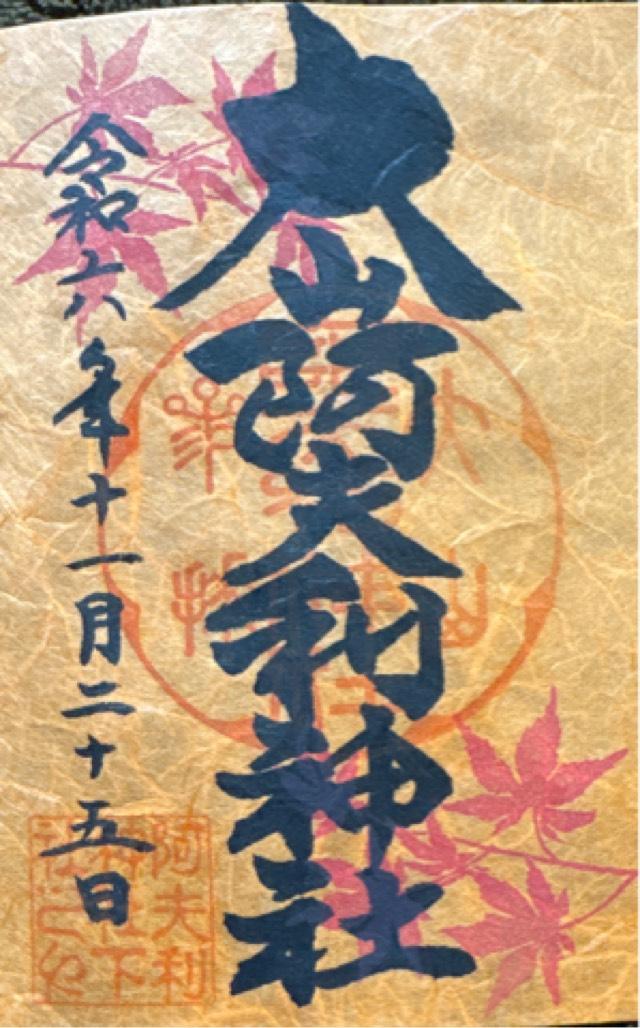 大山阿夫利神社
令和六年十一月二十五日
阿夫利
神社下